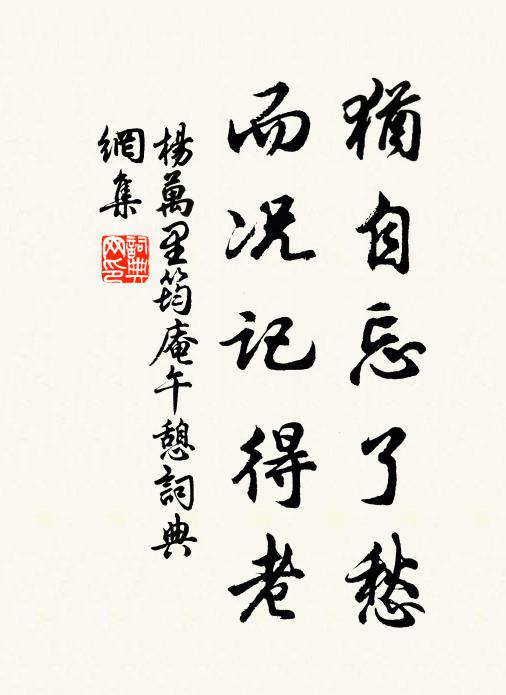 猶自忘了愁
而况記得老
楊萬里筠庵午憩詞典
網集
詞典
网印